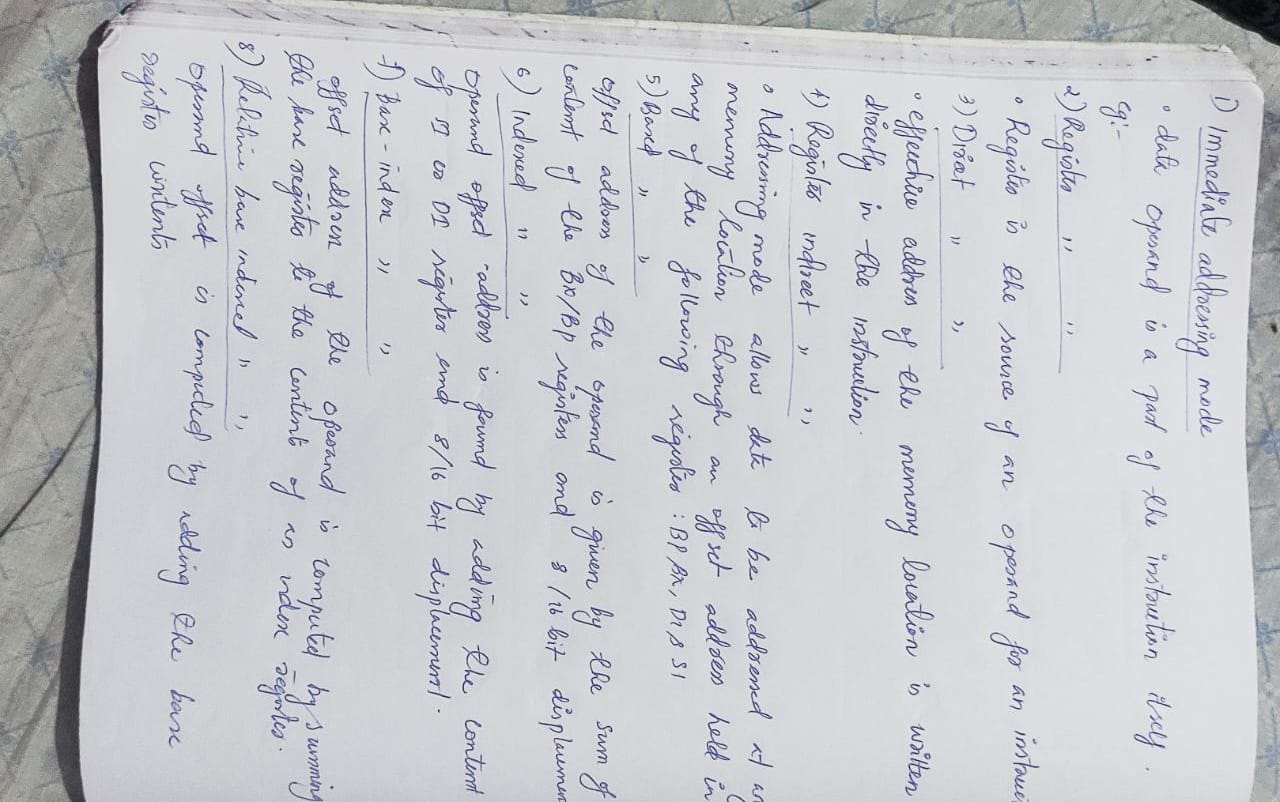 1) Immediate addressing mode
• data operand is a part of the instruction itself.
eg:-
2) Register ,, ,,
• Register is the source of an operand for an instruc
3) Direct ,, ,,
• effective address of the memory location is written
directly in the instruction.
4) Register indirect ,, ,,
• Addressing mode allows data to be addressed at any
memory location through an offset address held in
any of the following register : BP BX, DI & SI
5) Based ,, ,,
offset address of the operand is given by the sum of
content of the BX/BP registers and 8/16 bit displacemen
6) Indexed ,, ,,
operand offset address is found by adding the content
of SI or DI register and 8/16 bit displacement.
7) Base-index ,, ,,
offset address of the operand is computed by summing
the base register to the contents of an index register.
8) Relative base indexed ,, ,,
operand offset is computed by adding the base
register contents